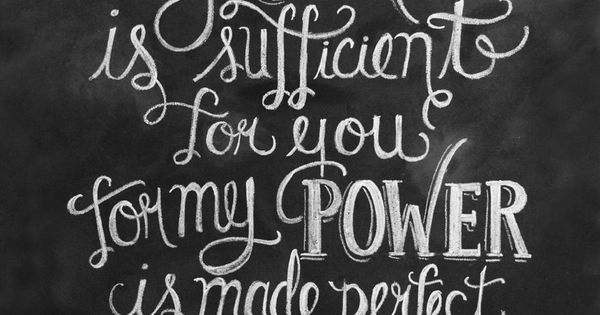 is sufficient
for you
for my POWER
is made perfect